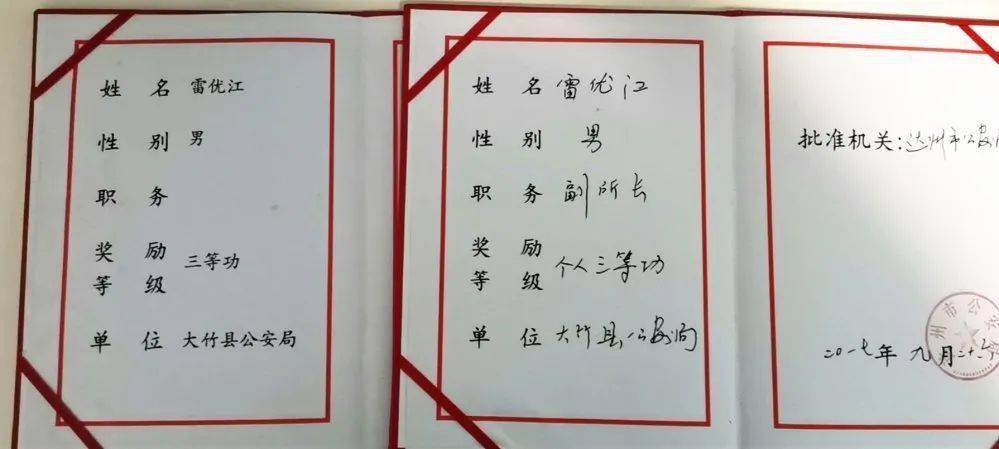 姓名 雷优江
性别 男
职务
奖励等级 三等功
单位 大竹县公安局
姓名 雷优江
性别 男
职务 副所长
奖励等级 个人三等功
单位 大竹县公安局
批准机关:达州市公安
二〇一七年九月二十
州市公